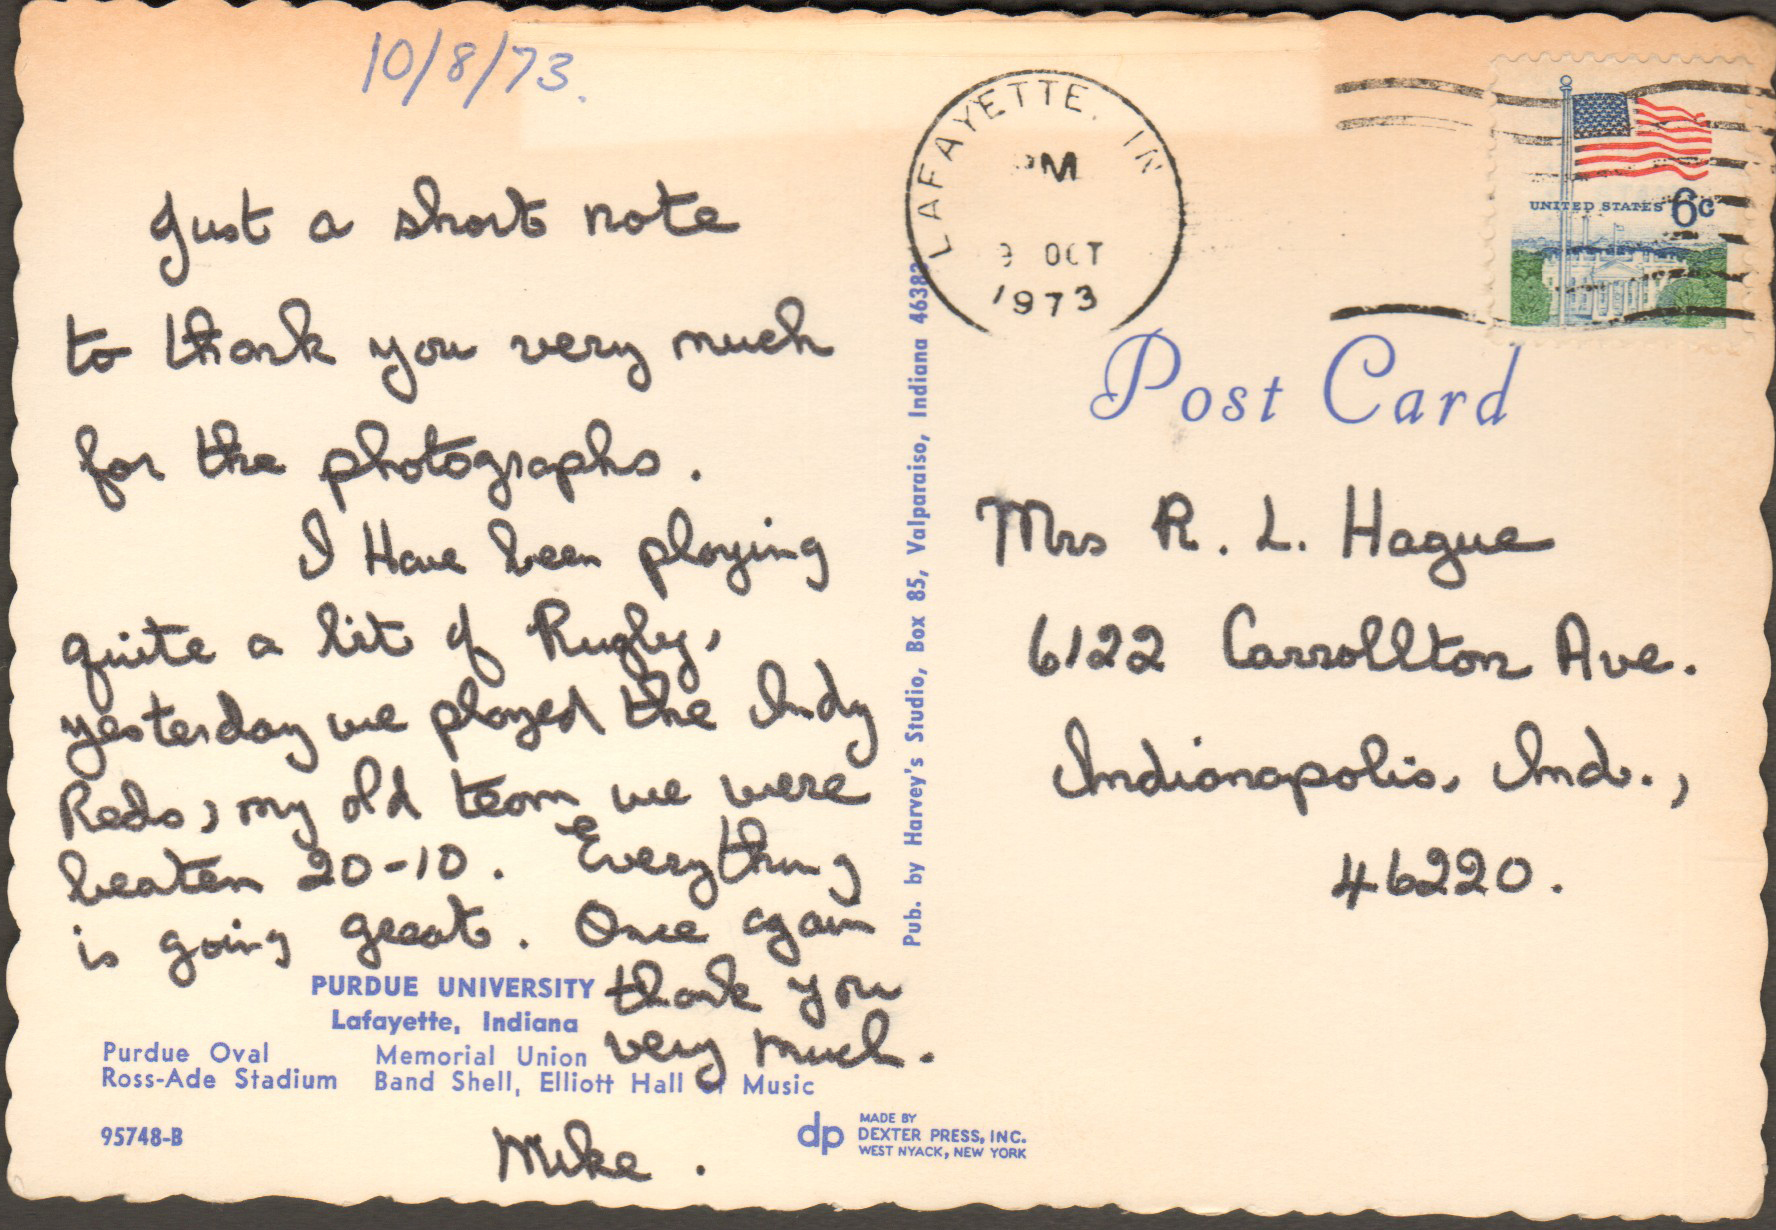 10/8/73.
Just a short note
to thank you very much
for the photographs.
I Have been playing
quite a bit of Rugby,
yesterday we played the Indy
Reds, my old team we were
beaten 20-10. Everything
is going great. Once again
thank you
very much.
Mike.
PURDUE UNIVERSITY
Lafayette, Indiana
Purdue Oval Memorial Union
Ross-Ade Stadium Band Shell, Elliott Hall of Music
95748-B
dp MADE BY
DEXTER PRESS, INC.
WEST NYACK, NEW YORK
Pub. by Harvey's Studio, Box 85, Valparaiso, Indiana 46383
LAFAYETTE, IN
PM
9 OCT
1973
UNITED STATES 6c
Post Card
Mrs R. L. Hague
6122 Carrollton Ave.
Indianapolis, Ind.,
46220.